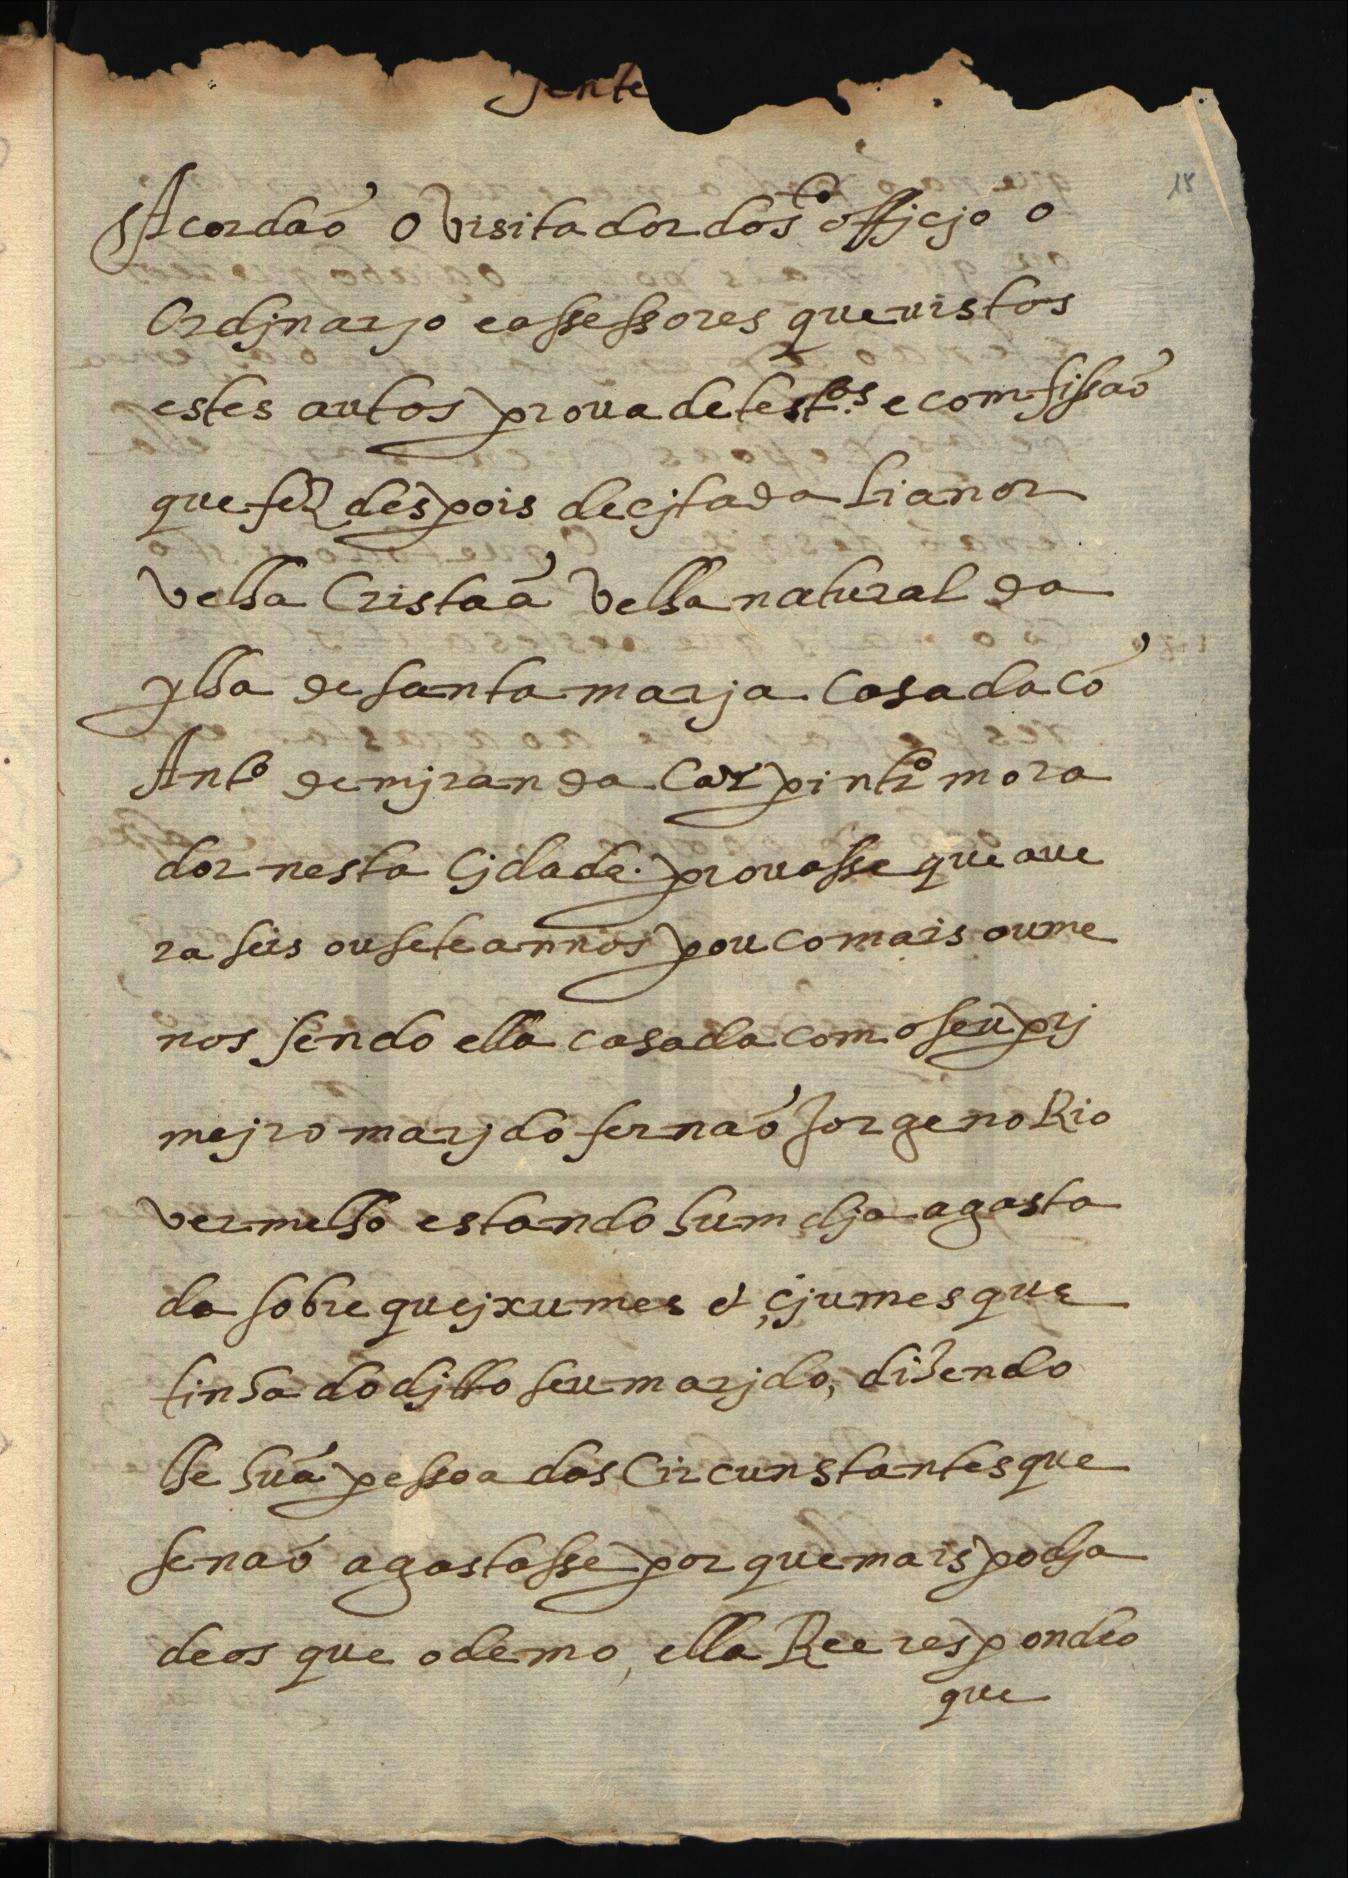 sente
18
Acordaõ o Visitador do sto officjo o
Ordjnarjo e assessores que uistos
estes autos proua de testas. e comfissaõ
que fez despois decitada Lianor
Velha Cristaã Velha natural da
ylha de santa marja casada cõ
Anto de mjranda Carpintro mora
dor nesta Cjdade. prouasse que aue
ra seis ou sete annos pouco mais ou me
nos sendo ella casada com o seu prj
mejro marjdo fernaõ Jorge no Rio
vermelho estando hum dja agasta
da sobre quejxumes e çjumes que
tinha do djtto seu marjdo, dizendo
lhe huã pessoa dos Circunstantes que
se naõ agastasse porque mais podja
deos que o demo, ella Ree respondeo
que